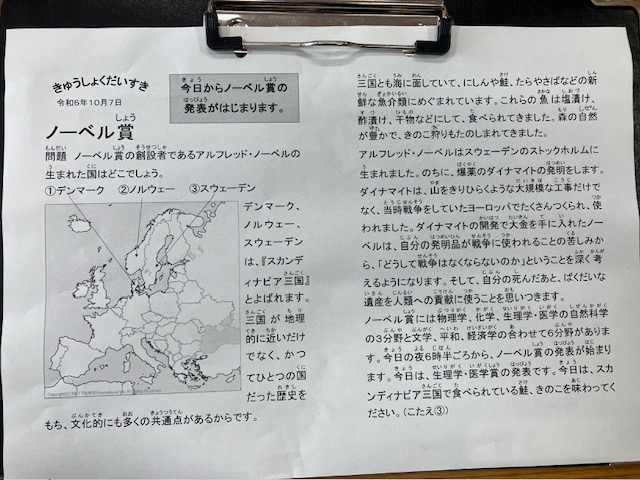 きゅうしょくだいすき
令和6年10月7日
今日からノーベル賞の
発表がはじまります。
ノーベル賞
問題 ノーベル賞の創設者であるアルフレッド・ノーベルの
生まれた国はどこでしょう。
①デンマーク ②ノルウェー ③スウェーデン
デンマーク、
ノルウェー、
スウェーデン
は、『スカンデ
ィナビア三国』
とよばれます。
三国が地理
的に近いだけ
でなく、かつ
てひとつの国
だった歴史を
もち、文化的にも多くの共通点があるからです。
三国とも海に面していて、にしんや鮭、たらやさばなどの新
鮮な魚介類にめぐまれています。これらの魚は塩漬け、
酢漬け、干物などにして、食べられてきました。森の自然
が豊かで、きのこ狩りもたのしまれてきました。
アルフレッド・ノーベルはスウェーデンのストックホルムに
生まれました。のちに、爆薬のダイナマイトの発明をします。
ダイナマイトは、山をきりひらくような大規模な工事だけで
なく、当時戦争をしていたヨーロッパでたくさんつくられ、使
われました。ダイナマイトの開発で大金を手に入れたノー
ベルは、自分の発明品が戦争に使われることの苦しみか
ら、「どうして戦争はなくならないのか」ということを深く考
えるようになります。そして、自分の死んだあと、ばくだいな
遺産を人類への貢献に使うことを思いつきます。
ノーベル賞には物理学、化学、生理学・医学の自然科学
の3分野と文学、平和、経済学の合わせて6分野がありま
す。今日の夜6時半ごろから、ノーベル賞の発表が始まり
ます。今日は、生理学・医学賞の発表です。今日は、スカ
ンディナビア三国で食べられている鮭、きのこを味わってく
ださい。(こたえ③)